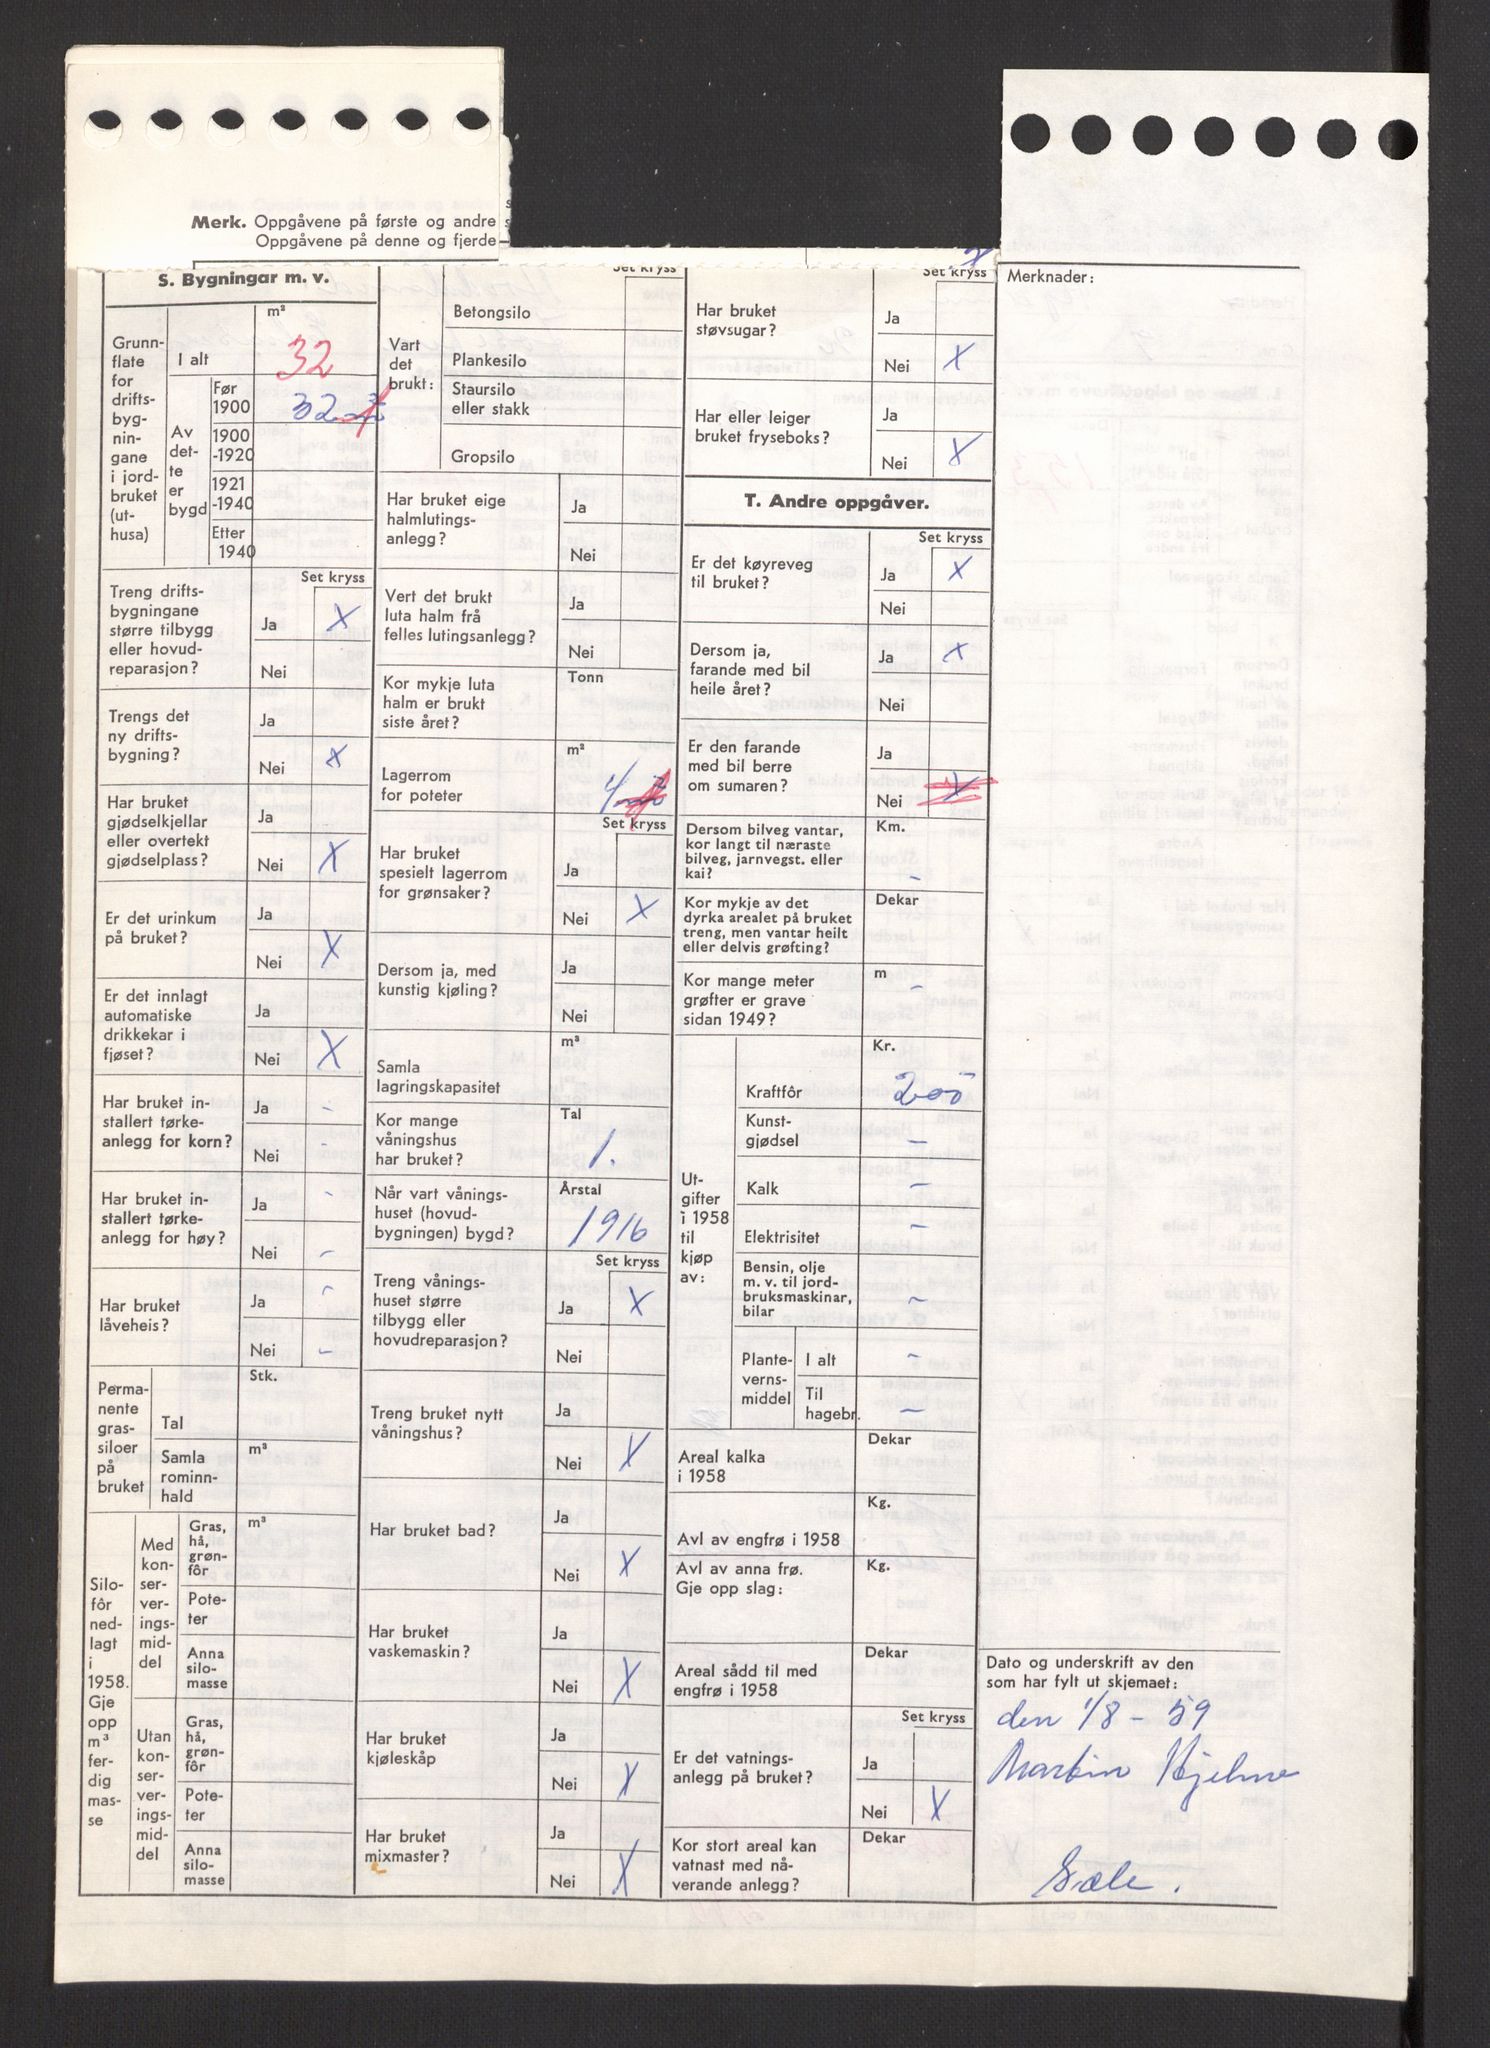 Merk. Oppgåvene på første og andre s
Oppgåvene på denne og fjerde
S. Bygningar m. v.
m²
Grunn-
flate
for
drifts-
byg-
nin-
gane
i jord-
bruket
(ut-
husa)
I alt
32
Av
det-
te
er
bygd
Før
1900
32 m²
1900
-1920
1921
-1940
Etter
1940
Set kryss
Treng drifts-
bygningane
større tilbygg
eller hovud-
reparasjon?
Ja X
Nei
Trengs det
ny drifts-
bygning?
Ja
Nei X
Har bruket
gjødselkjellar
eller overtekt
gjødselplass?
Ja
Nei X
Er det urinkum
på bruket?
Ja
Nei X
Er det innlagt
automatiske
drikkekar i
fjøset?
Ja
Nei X
Har bruket in-
stallert tørke-
anlegg for korn?
Ja -
Nei -
Har bruket in-
stallert tørke-
anlegg for høy?
Ja -
Nei -
Har bruket
låveheis?
Ja -
Nei -
Perma-
nente
gras-
siloer
på
bruket
Stk.
Tal
m³
Samla
rominn-
hald
Silo-
fôr
ned-
lagt
i
1958.
Gje
opp
m³
fer-
dig
mas-
se
Med
kon-
ser-
ver-
ings-
mid-
del
m³
Gras,
hå,
grøn-
fôr
Pote-
ter
Anna
silo-
masse
Utan
kon-
ser-
ver-
ings-
mid-
del
Gras,
hå,
grøn-
fôr
Pote-
ter
Anna
silo-
masse
Set kryss
Vart
det
brukt:
Betongsilo
Plankesilo
Staursilo
eller stakk
Gropsilo
Har bruket eige
halmlutings-
anlegg?
Ja
Nei
Vert det brukt
luta halm frå
felles lutingsanlegg?
Ja
Nei
Kor mykje luta
halm er brukt
siste året?
Tonn
Lagerrom
for poteter
m²
4 m²
Set kryss
Har bruket
spesielt lagerrom
for grønsaker?
Ja
Nei X
Dersom ja, med
kunstig kjøling?
Ja
Nei
Samla
lagringskapasitet
m³
Kor mange
våningshus
har bruket?
Tal
1.
Når vart vånings-
huset (hovud-
bygningen) bygd?
Årstal
1916
Set kryss
Treng vånings-
huset større
tilbygg eller
hovudreparasjon?
Ja X
Nei
Treng bruket nytt
våningshus?
Ja
Nei X
Har bruket bad?
Ja
Nei X
Har bruket
vaskemaskin?
Ja
Nei X
Har bruket
kjøleskåp
Ja
Nei X
Har bruket
mixmaster?
Ja
Nei X
X
Set kryss
Har bruket
støvsugar?
Ja
Nei X
Har eller leiger
bruket fryseboks?
Ja
Nei X
T. Andre oppgåver.
Set kryss
Er det køyreveg
til bruket?
Ja X
Nei
Dersom ja,
farande med bil
heile året?
Ja X
Nei
Er den farande
med bil berre
om sumaren?
Ja
Nei X
Dersom bilveg vantar,
kor langt til næraste
bilveg, jarnvegst. eller
kai?
Km.
-
Kor mykje av det
dyrka arealet på bruket
treng, men vantar heilt
eller delvis grøfting?
Dekar
-
Kor mange meter
grøfter er grave
sidan 1949?
m
-
Ut-
gifter
i 1958
til
kjøp
av:
Kr.
Kraftfôr 200
Kunst-
gjødsel -
Kalk -
Elektrisitet -
Bensin, olje
m. v. til jord-
bruksmaskinar,
bilar -
Plante-
verns-
middel
I alt -
Til
hagebr. -
Areal kalka
i 1958
Dekar
Avl av engfrø i 1958
Kg.
Avl av anna frø.
Gje opp slag:
Kg.
Areal sådd til med
engfrø i 1958
Dekar
Set kryss
Er det vatnings-
anlegg på bruket?
Ja
Nei X
Kor stort areal kan
vatnast med nå-
verande anlegg?
Dekar
Merknader:
Dato og underskrift av den
som har fylt ut skjemaet:
den 1/8 - 59
Martin Hjelme
Sæle.